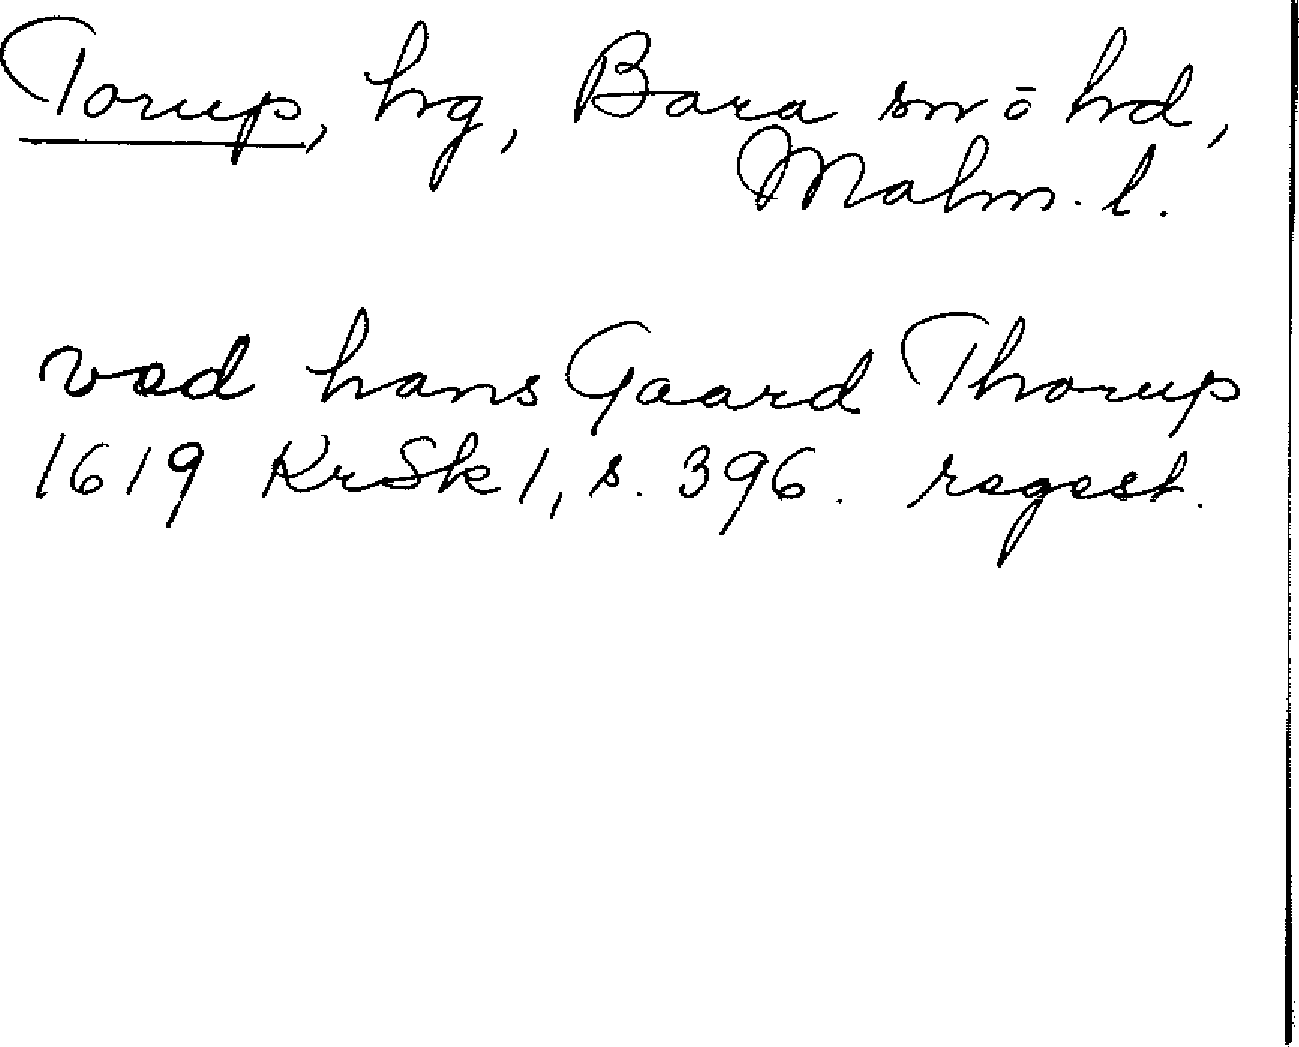 Torup, hg, Bara sn o hd,
Malm. l.
ved hans Gaard Thorup
1619 KrSk 1, s. 396. regest.